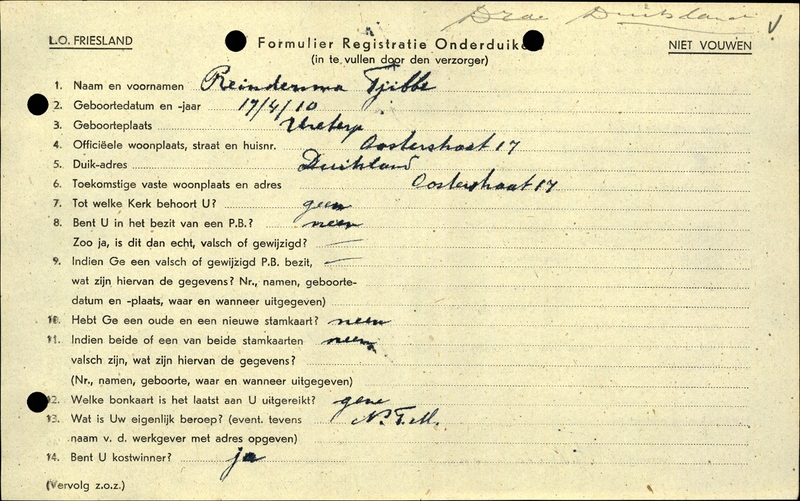 Duitsland
L.O. FRIESLAND
Formulier Registratie Onderduik
NIET VOUWEN
(in te vullen door den verzorger)
1. Naam en voornamen Reindersma Tjibbe
2. Geboortedatum en -jaar 17/4/10
3. Geboorteplaats Ureterp
4. Officiëele woonplaats, straat en huisnr. Oosterstraat 17
5. Duik-adres Duitsland
6. Toekomstige vaste woonplaats en adres Oosterstraat 17
7. Tot welke Kerk behoort U? geen
8. Bent U in het bezit van een P.B.? neen
Zoo ja, is dit dan echt, valsch of gewijzigd? —
9. Indien Ge een valsch of gewijzigd P.B. bezit, —
wat zijn hiervan de gegevens? Nr., namen, geboorte-
datum en -plaats, waar en wanneer uitgegeven)
10. Hebt Ge een oude en een nieuwe stamkaart? neen
11. Indien beide of een van beide stamkaarten neen
valsch zijn, wat zijn hiervan de gegevens?
(Nr., namen, geboorte, waar en wanneer uitgegeven)
12. Welke bonkaart is het laatst aan U uitgereikt? gene
13. Wat is Uw eigenlijk beroep? (event. tevens N.T.M.
naam v. d. werkgever met adres opgeven)
14. Bent U kostwinner? ja
(Vervolg z.o.z.)